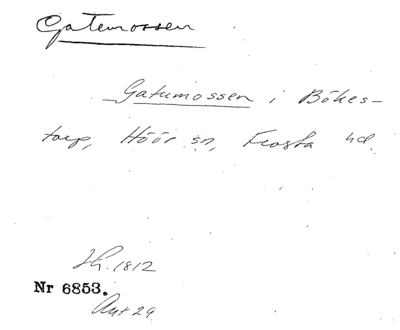 Gatemossen
Gatumossen i Bökes-
torp, Höör sn, Frosta hd.
1812
Nr 6853.
Ant 29